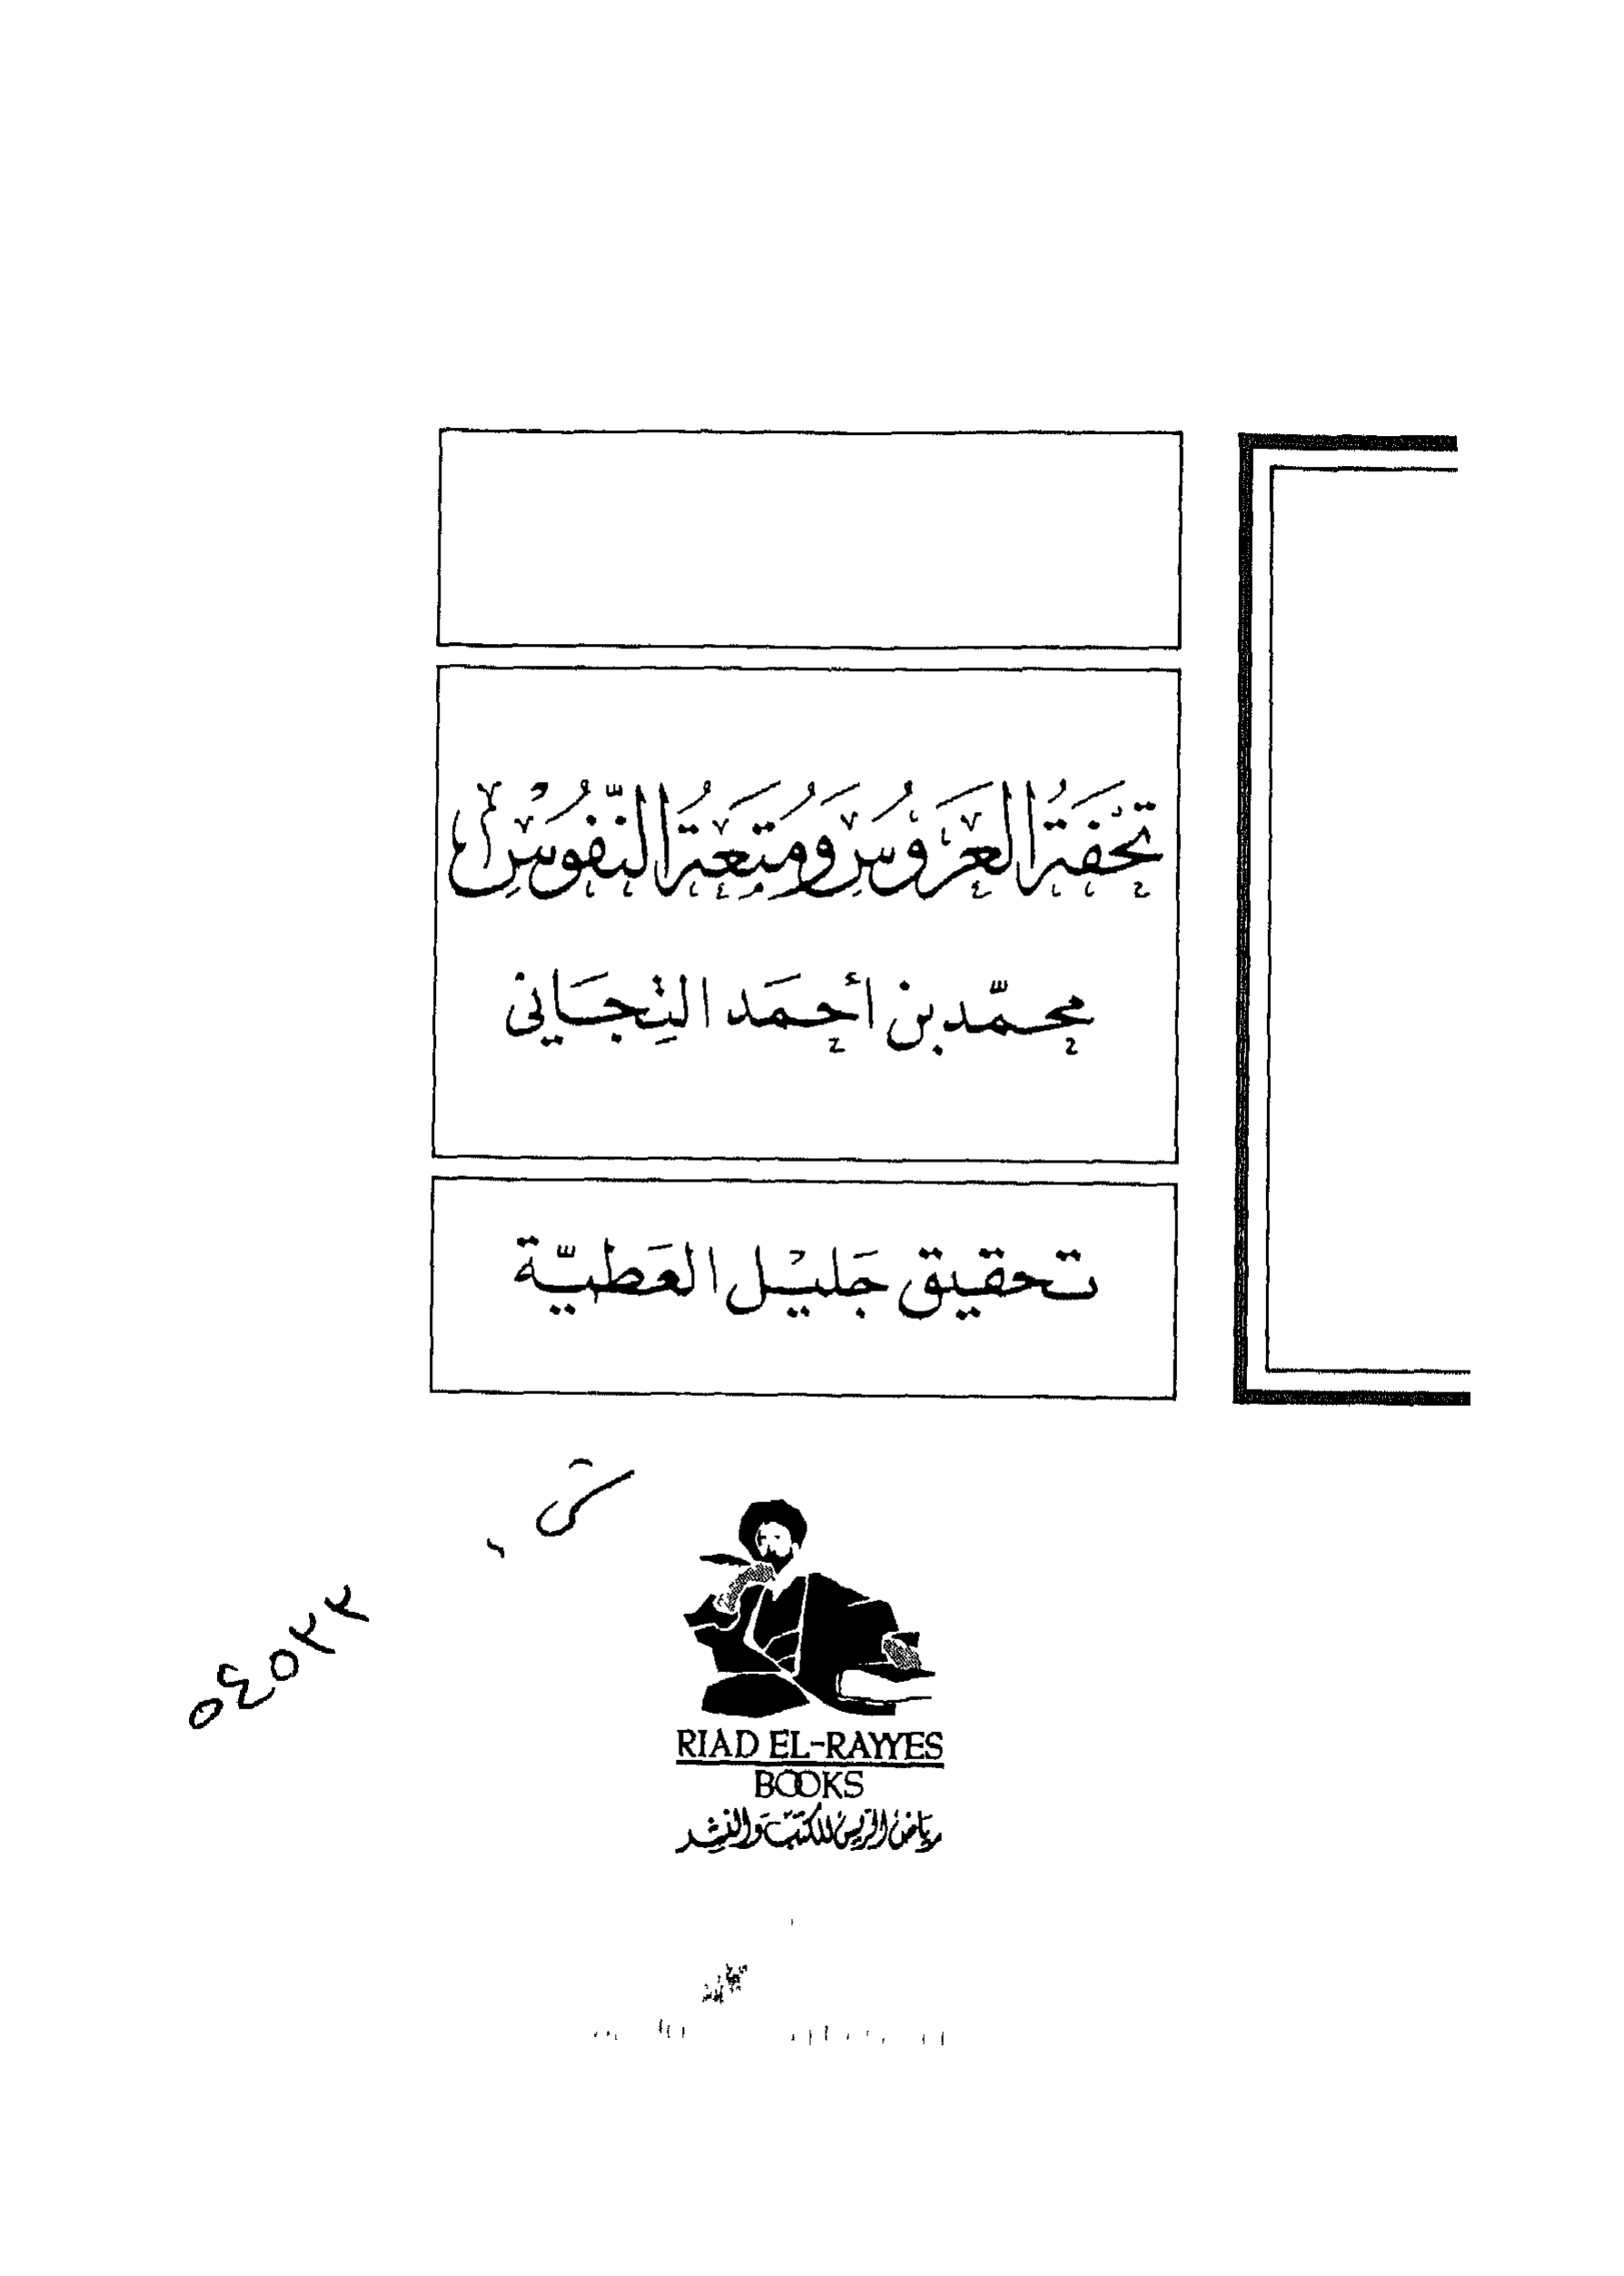 تُحْفَةُ العَرُوسِ وَمُتْعَةُ النُّفُوسِ
محمّد بن أحمَد التِجَاني
تحقيق جَليْل العَطيّة
٥٤٥٢٢
RIAD EL-RAYYES
BOOKS
رياض الريس للكتب والنشر